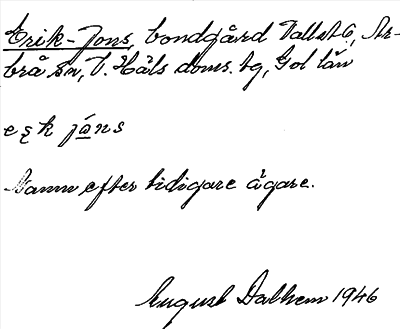 Erik-Jons, bondgård Vallst 6, Ar-
brå sn, V. Häls doms. tg, Gol län
e ȩ k jȧns
Namn efter tidigare ägare.
August Dalhem 1946